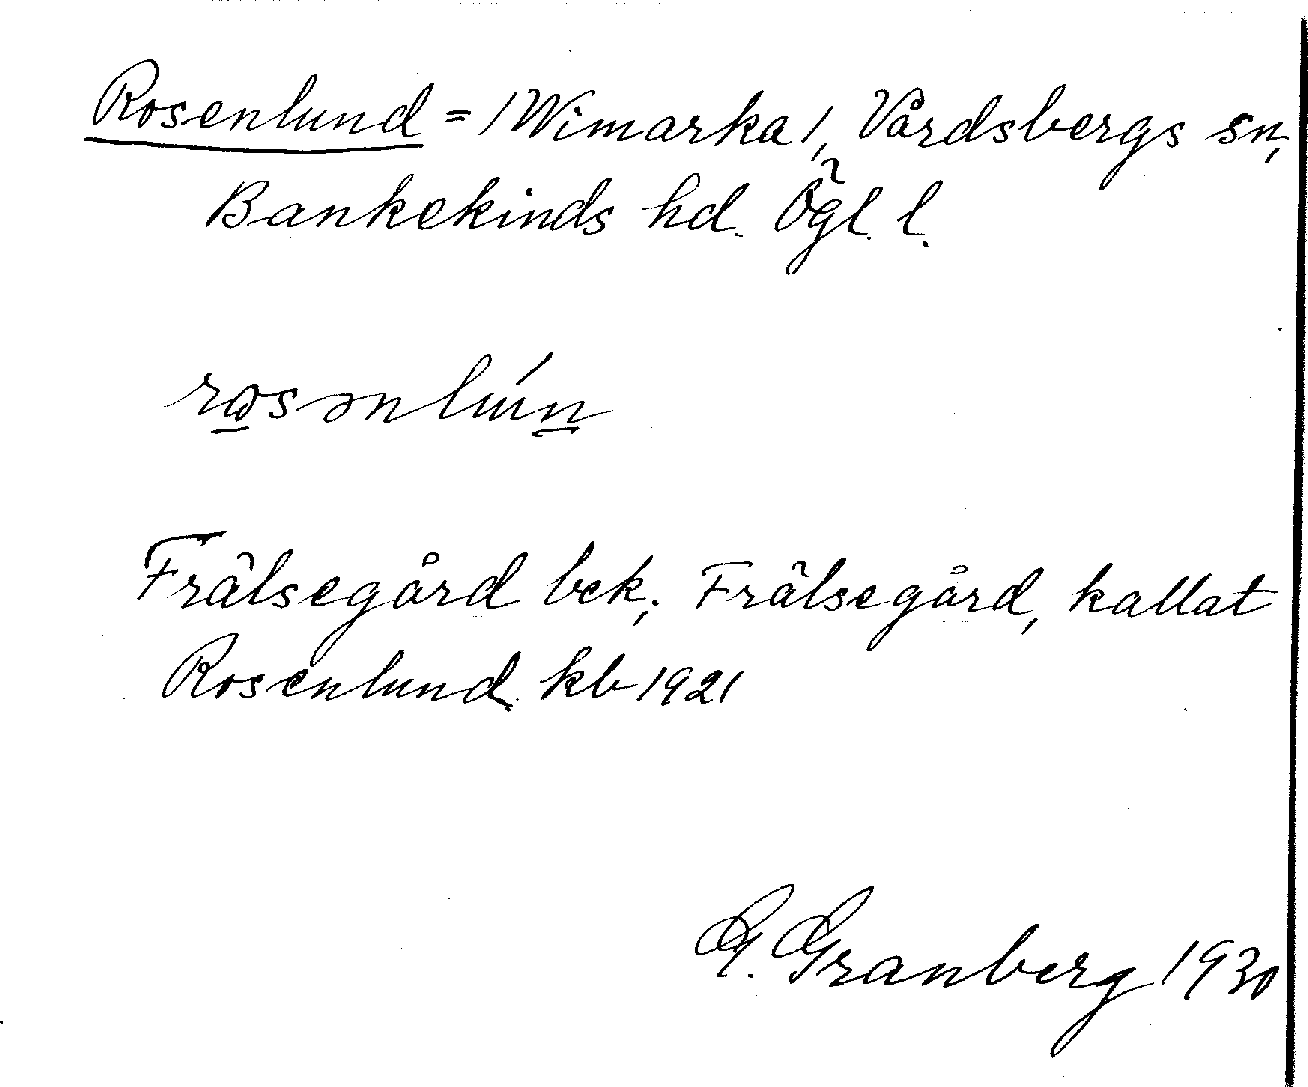 Rosenlund = /Wimarka/, Vårdsbergs sn,
Bankekinds hd. Ögl. l.
rosənlún
Frälsegård bek; Frälsegård, kallat
Rosenlund kb 1921
G. Granberg 1930